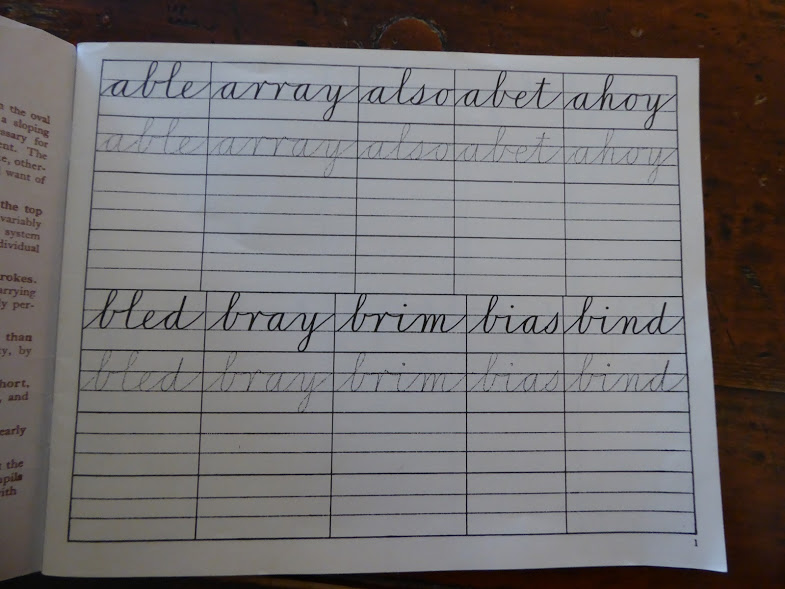 n the oval
a sloping
ssary for
ent. The
e, other-
want of
the top
variably
system
dividual
rokes.
arrying
ly per-
than
y, by
hort,
, and
early
t the
upils
with
able array also abet ahoy
able array also abet ahoy
bled bray brim bias bind
bled bray brim bias bind
1